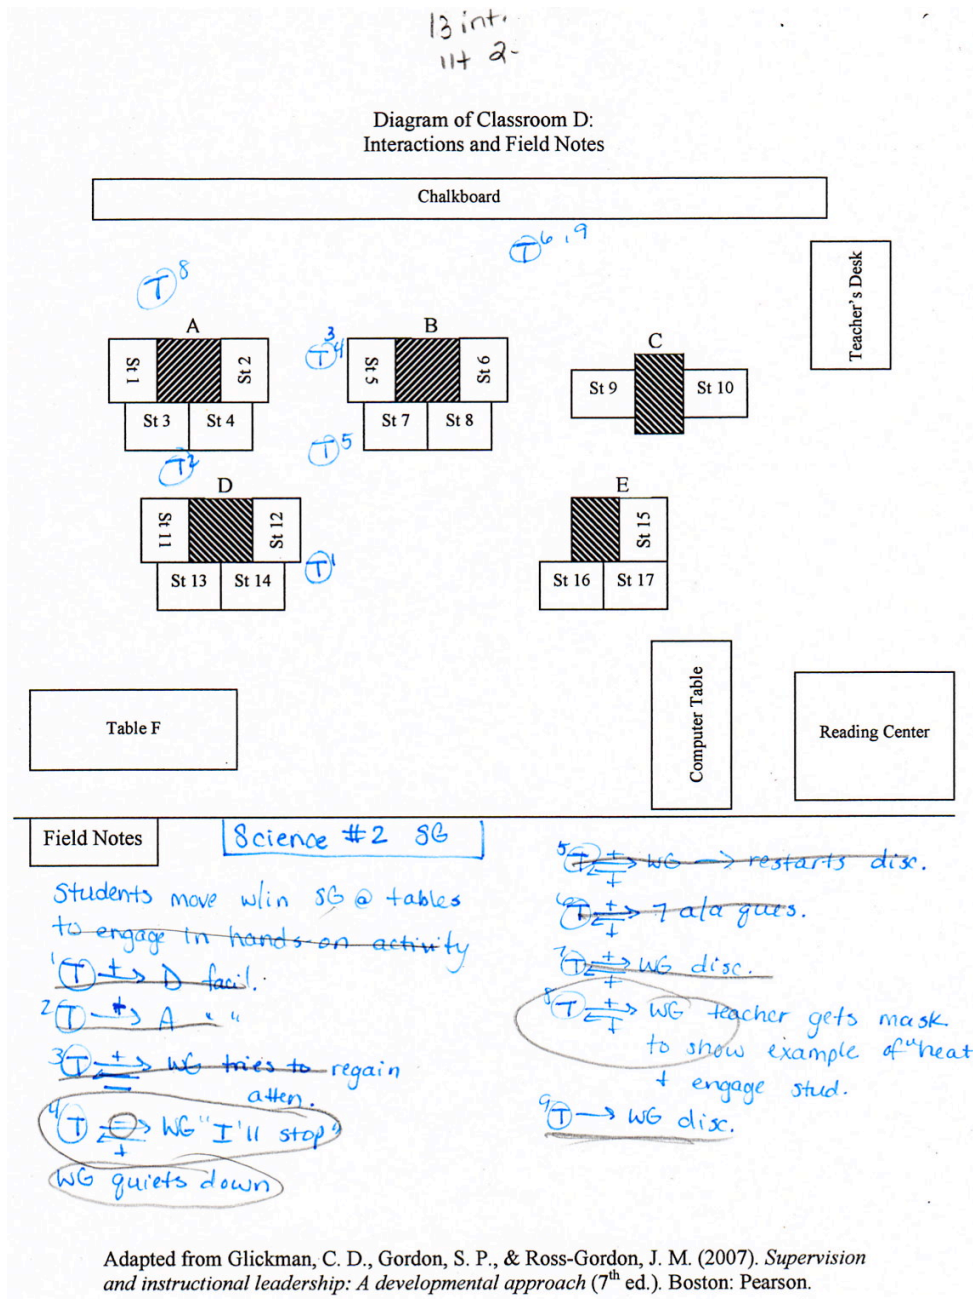 13 int.
11+ 2-
Diagram of Classroom D:
Interactions and Field Notes
Chalkboard
T 6, 9
T 8
Teacher's Desk
A
B
C
3
T 4
St 1
St 2
St 5
St 6
St 9
St 10
St 3
St 4
St 7
St 8
T 5
T 2
D
E
St 11
St 12
St 15
T 1
St 13
St 14
St 16
St 17
Table F
Computer Table
Reading Center
Field Notes
Science #2 SG
Students move w/in SG @ tables
to engage in hands-on activity
1 T +→ D facil.
2 T +→ A " "
3 T +→ WG tries to regain
atten.
4 T WG "I'll stop"
WG quiets down
5 T + WG → restarts disc.
+
6 T + 7 a/a ques.
+
7 T + WG disc.
+
8 T + WG teacher gets mask
+ to show example of "heat
+ engage stud.
9 T → WG disc.
Adapted from Glickman, C. D., Gordon, S. P., & Ross-Gordon, J. M. (2007). Supervision
and instructional leadership: A developmental approach (7th ed.). Boston: Pearson.